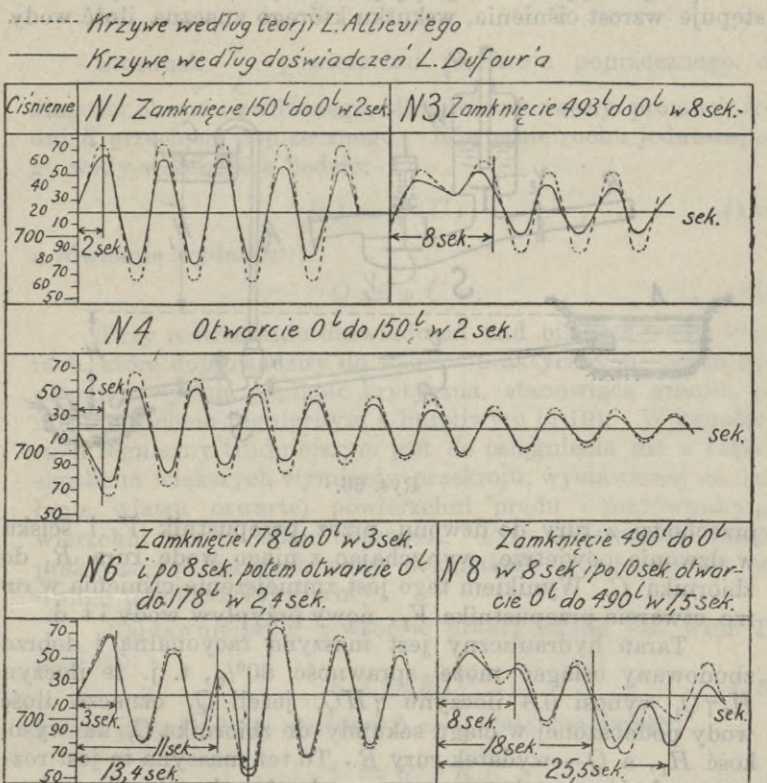 stępuje wzrost ciśnienia, wskutek którego znaczna ilość wody
------ Krzywe według teorji L. Allievi'ego
—— Krzywe według doświadczeń L. Dufour'a
Ciśnienie N1 Zamknięcie 150ᴸ do 0ᴸ w 2sek. N3 Zamknięcie 493ᴸ do 0ᴸ w 8sek.-
70
60
50
40
30
20
10
700
90
80
70
60
50
2sek.
8sek.
sek.
N4 Otwarcie 0ᴸ do 150ᴸ w 2 sek.
70
50
30
10
700
90
70
50
2sek.
sek.
N6 Zamknięcie 178ᴸ do 0ᴸ w 3sek.
i po 8sek. potem otwarcie 0ᴸ
do 178ᴸ w 2,4sek.
N8 Zamknięcie 490ᴸ do 0ᴸ
w 8sek i po 10sek. otwar-
cie 0ᴸ do 490ᴸ w 7,5sek.
70
50
30
10
700
90
70
50
3sek.
11sek
13,4sek.
8sek.
18sek.
25,5sek.